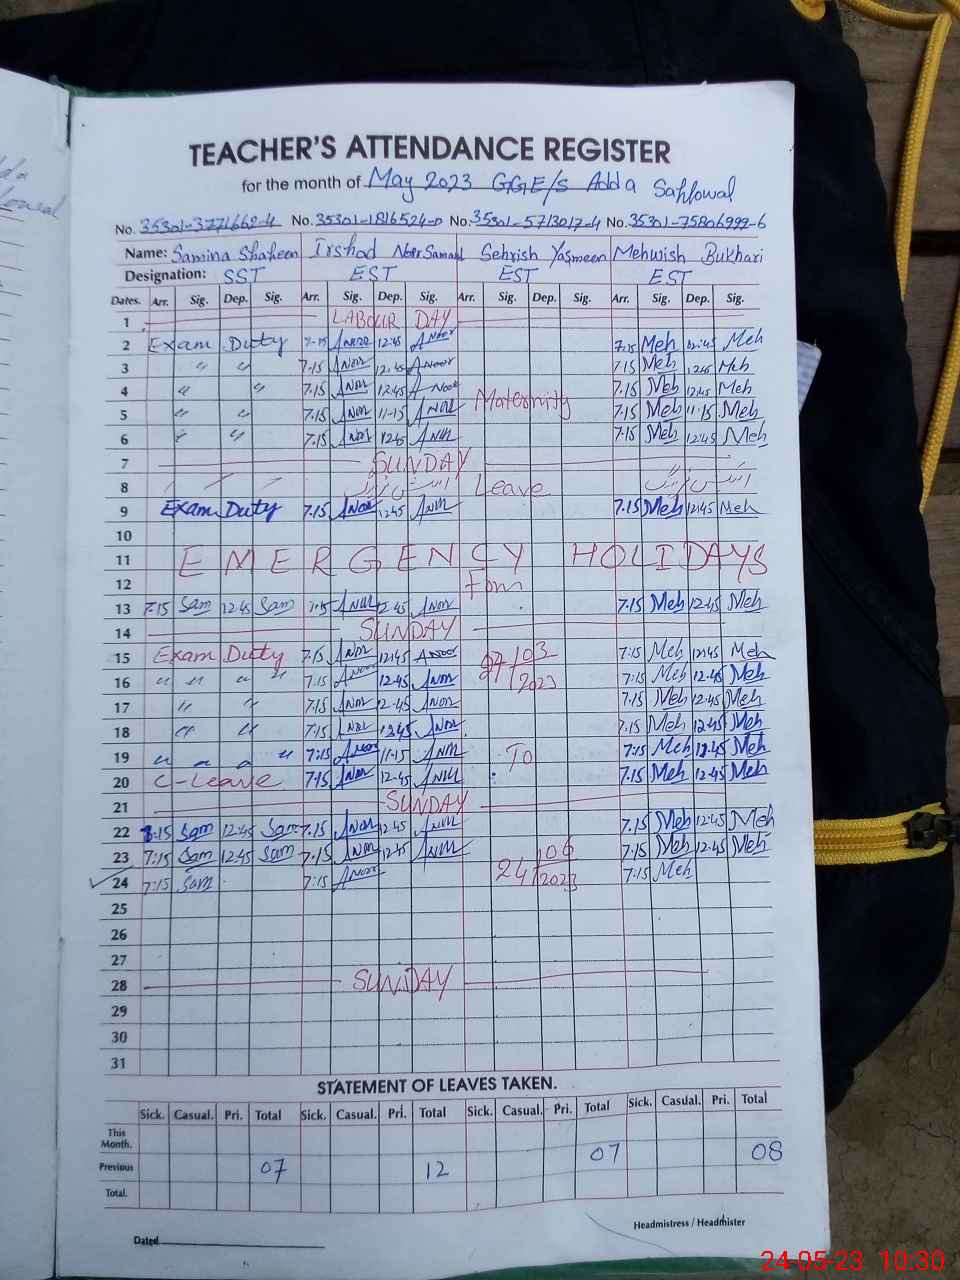 TEACHER'S ATTENDANCE REGISTER
for the month of May 2023 GGE/S Adda Sahlowal
No. 35301-3771662-4 No. 35301-1816524-0 No. 35301-5713017-4 No. 35301-75806999-6
Name: Samina Shaheen Irshad Noor Samabl Sehrish Yasmeen Mehwish Bukhari
Designation: SST EST EST EST
Dates. Arr. Sig. Dep. Sig. Arr. Sig. Dep. Sig. Arr. Sig. Dep. Sig. Arr. Sig. Dep. Sig.
1 LABOUR DAY
2 Exam Duty 7-15 Anor 12:45 Anoor 7:15 Meh 12:45 Meh
3 " " 7.15 Anor 12.45 Anoor 7.15 Meh 12.45 Meh
4 " " 7.15 Anor 12.45 Anoor 7.15 Meh 12.45 Meh
Maternity
5 " " 7.15 Anor 11-15 Anor 7.15 Meh 11.15 Meh
6 " " 7.15 Anor 12.45 Anor 7.15 Meh 12.45 Meh
7 SUNDAY
8 Leave
9 Exam Duty 7.15 Anor 12.45 Anor 7.15 Meh 12.45 Meh
10
11 EMERGENCY HOLIDAYS
12 From
13 7.15 Sam 12.45 Sam 7.15 Anor 12.45 Anor 7.15 Meh 12.45 Meh
14 SUNDAY
15 Exam Duty 7.15 Anor 12.45 Anoor 27/03 7:15 Meh 12:45 Meh
16 " " " " 7.15 Anoor 12.45 Anor 2023 7:15 Meh 12.45 Meh
17 " " 7.15 Anor 12.45 Anor 7.15 Meh 12.45 Meh
18 " " 7.15 Anor 12.45 Anor 7.15 Meh 12.45 Meh
19 " " " " 7:15 Anoor 11-15 Anor To 7:15 Meh 11.45 Meh
20 C-Leave 7.15 Anor 12-45 Anor 7.15 Meh 12.45 Meh
21 SUNDAY
22 7.15 Sam 12.45 Sam 7.15 Anor 12.45 Anor 7.15 Meh 12.45 Meh
23 7:15 Sam 12.45 Sam 7.15 Anor 12.45 Anor 7:15 Meh 12.45 Meh
24 7:15 Sam 7:15 Anoor 24/06/2023 7:15 Meh
25
26
27
28 SUNDAY
29
30
31
STATEMENT OF LEAVES TAKEN.
Sick. Casual. Pri. Total Sick. Casual. Pri. Total Sick. Casual. Pri. Total Sick. Casual. Pri. Total
This Month. 07 08
Previous 07 12
Total.
Headmistress / Headmister
Dated
24-05-23 10:30